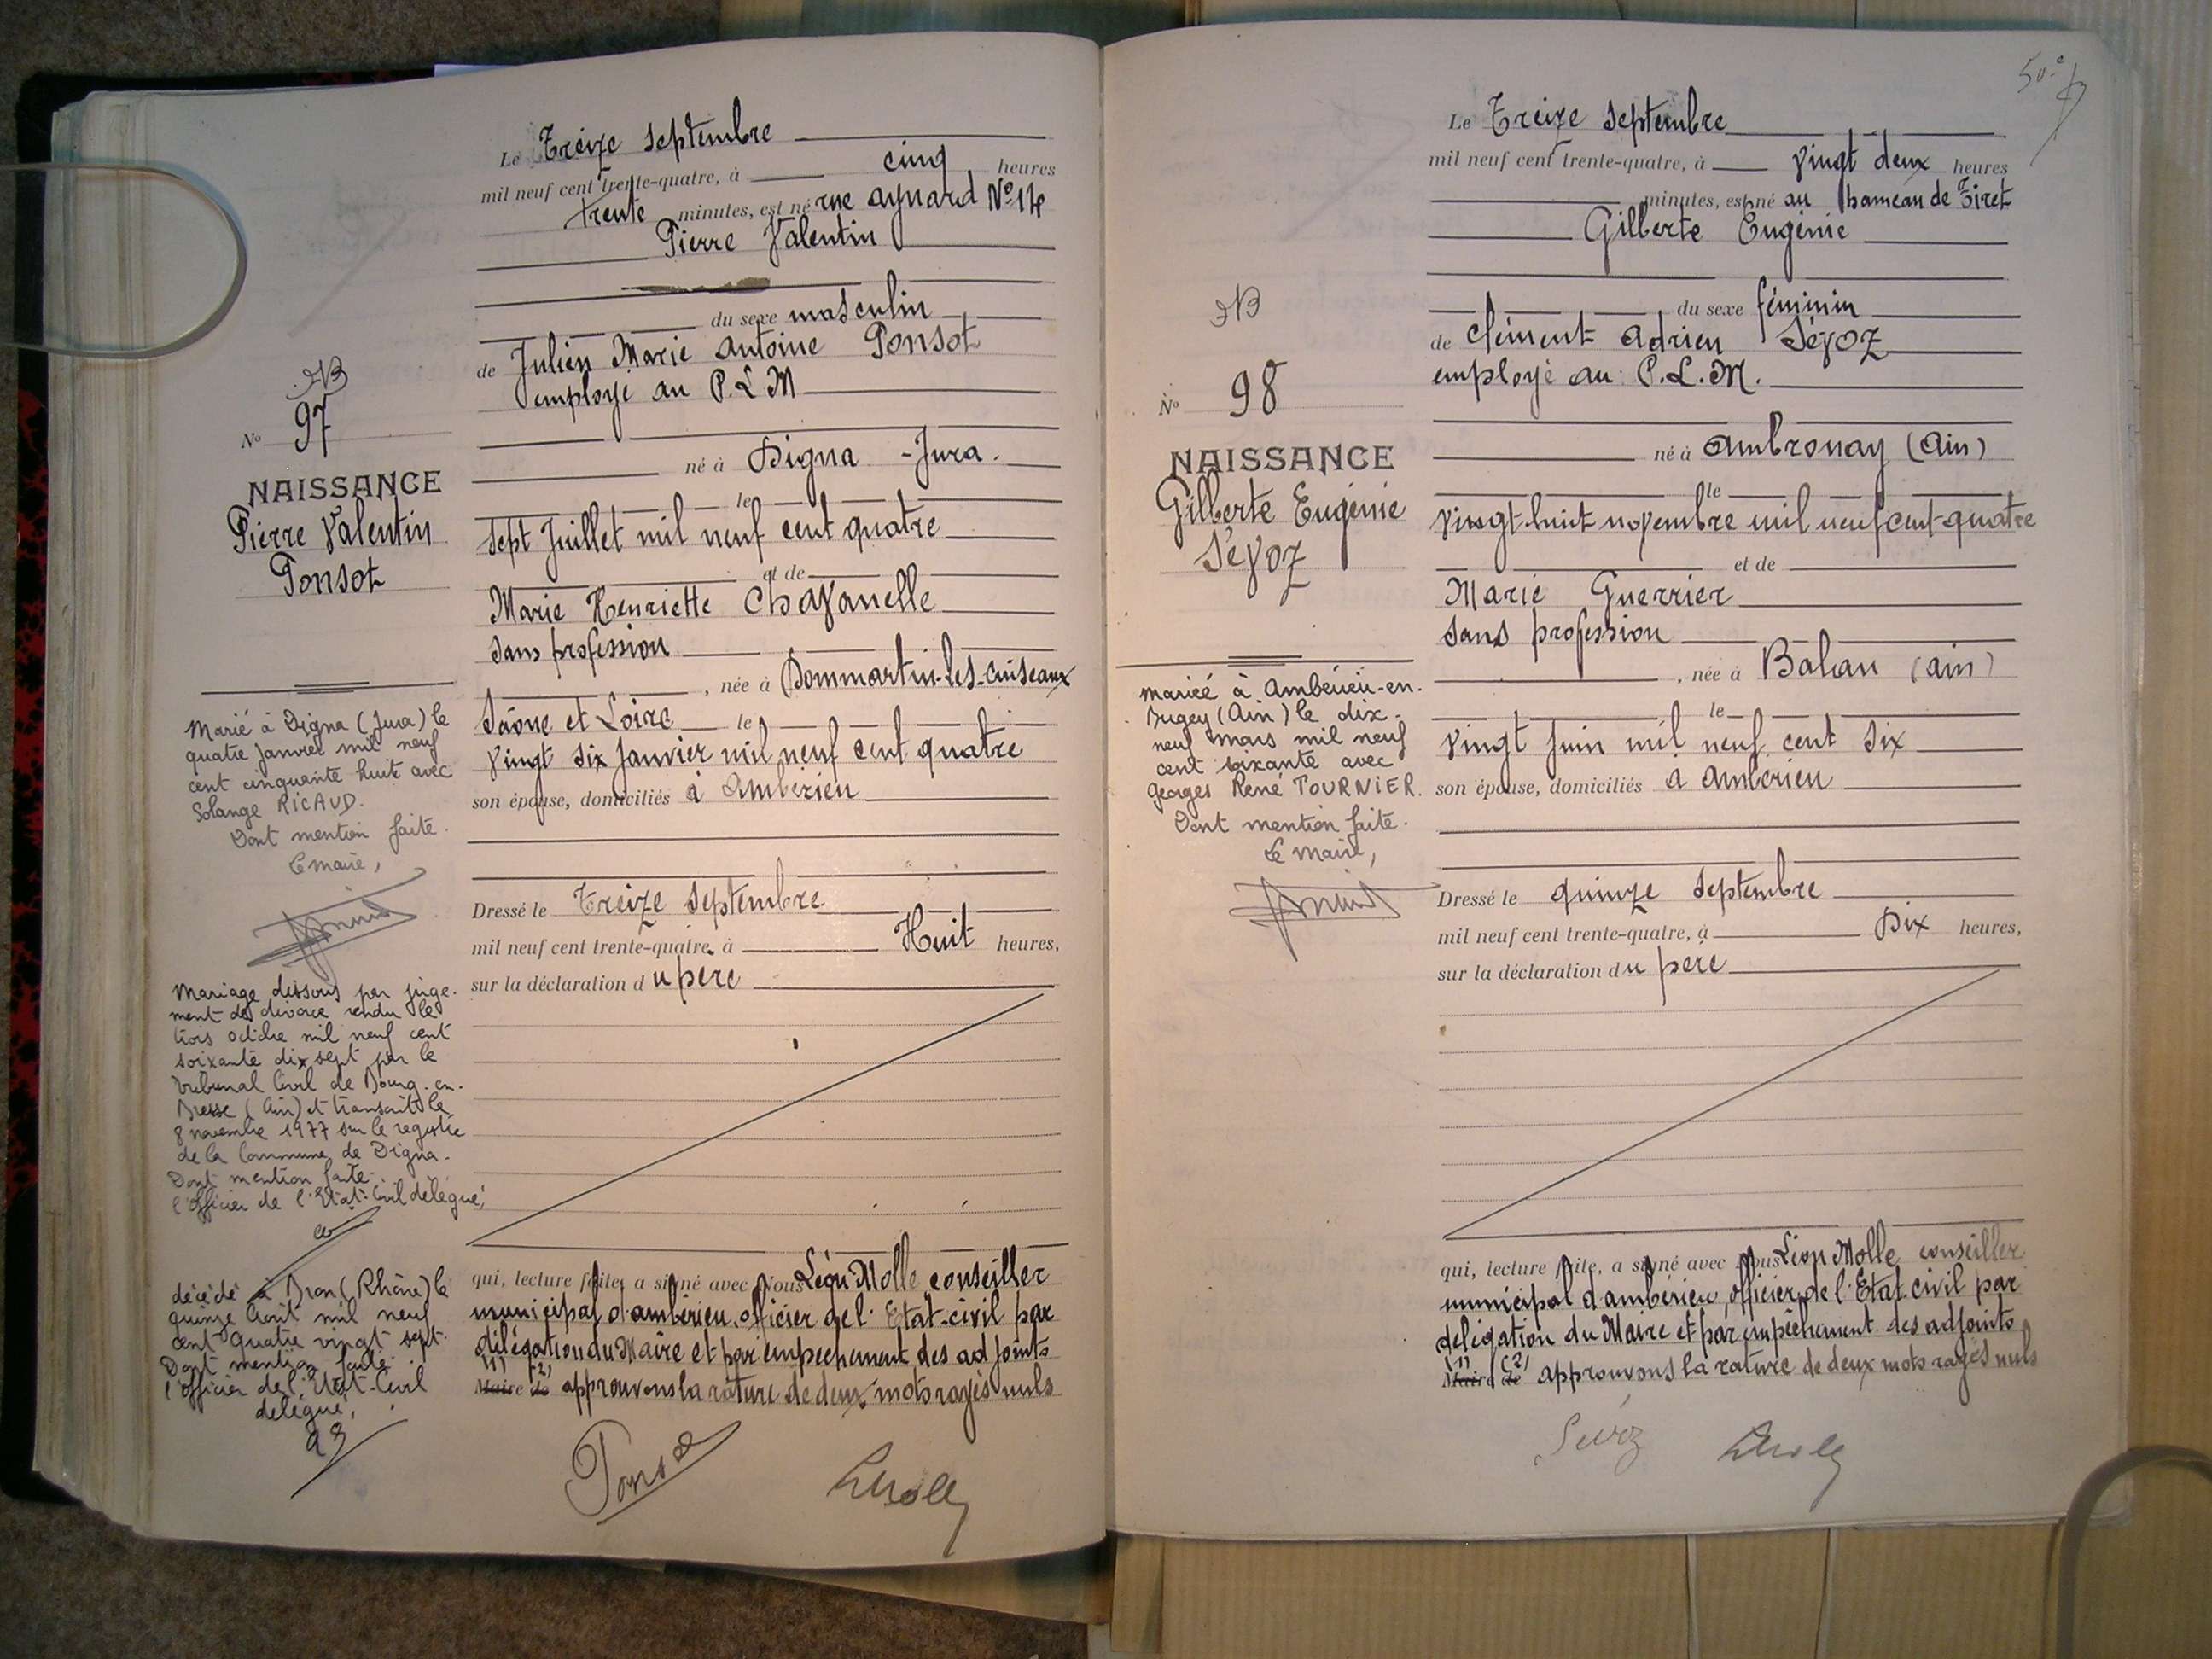 NB
N° 97
NAISSANCE
Pierre Valentin
Ponsot
Marié à Digna (Jura) le
quatre Janvier mil neuf
cent cinquante huit avec
Solange RICAUD.
Dont mention faite.
Le maire,
Mariage dissous par juge-
ment de divorce rendu le
trois octobre mil neuf cent
soixante dix sept par le
tribunal Civil de Bourg-en-
Bresse (Ain) et transcrit le
8 novembre 1977 sur le registre
de la Commune de Digna.
Dont mention faite.
l'officier de l'Etat-Civil délégué,
décédé à Bron (Rhône) le
quinze Août mil neuf
cent quatre vingt sept.
Dont mention faite.
l'officier de l'Etat-Civil
délégué,
Le Treize Septembre
mil neuf cent trente-quatre, à cinq heures
trente minutes, est né rue aynard N° 14
Pierre Valentin
du sexe masculin
de Julien Marie Antoine Ponsot
employé au P.L.M
né à Digna - Jura.
le
sept Juillet mil neuf cent quatre
et de
Marie Henriette Chavanelle
sans profession
, née à Dommartin-les-cuiseaux
Saône et Loire le
vingt six Janvier mil neuf cent quatre
son épouse, domiciliés à Ambérieu
Dressé le Treize Septembre
mil neuf cent trente-quatre, à Huit heures,
sur la déclaration du père
qui, lecture faite, a signé avec Nous Léon Molle conseiller
municipal d'ambérieu, officier de l'Etat-civil par
délégation du Maire et par empêchement des adjoints
(1) (2)
Maire de approuvons la rature de deux mots rayés nuls
Ponsot
LMolle
50e
NB
N° 98
NAISSANCE
Gilberte Eugénie
Sévoz
Mariée à Ambérieu-en-
Bugey (Ain) le dix-
neuf mars mil neuf
cent soixante avec
Georges René TOURNIER.
Dont mention faite.
Le Maire,
Le Treize Septembre
mil neuf cent trente-quatre, à vingt deux heures
minutes, est né au hameau de Tiret
Gilberte Eugénie
du sexe féminin
de Clément Adrien Sévoz
employé au P.L.M.
né à Ambronay (Ain)
le
vingt-huit novembre mil neuf cent quatre
et de
Marie Guerrier
sans profession
, née à Balan (ain)
le
vingt Juin mil neuf cent six
son épouse, domiciliés à Ambérieu
Dressé le quinze Septembre
mil neuf cent trente-quatre, à Dix heures,
sur la déclaration du père
qui, lecture faite, a signé avec Nous Léon Molle conseiller
municipal d'ambérieu, officier de l'Etat-civil par
délégation du Maire et par empêchement des adjoints
(1) (2)
Maire de approuvons la rature de deux mots rayés nuls
Sévoz
LMolle